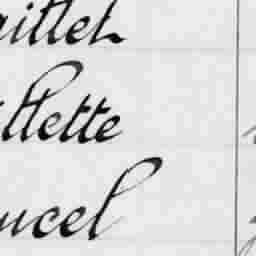 aillet
illette
ucel